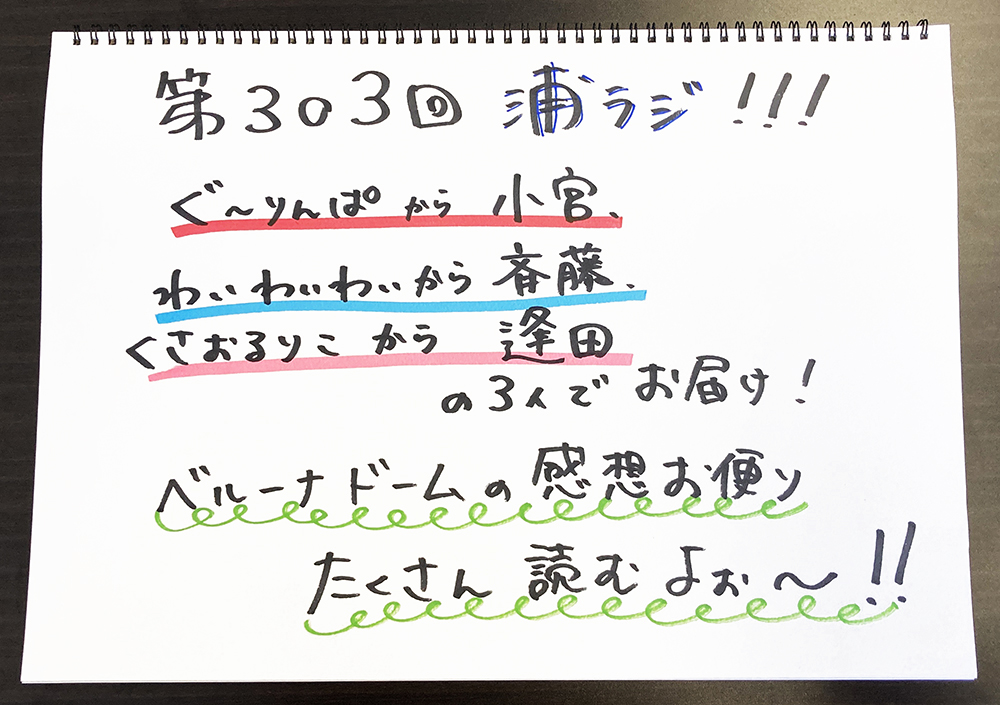 第303回 浦ラジ!!!
ぐ〜りんぱから 小宮、
わいわいわいから 斉藤、
くさおるりこから 逢田
の3人でお届け!
ベルーナドームの感想お便り
たくさん読むよぉ〜!!